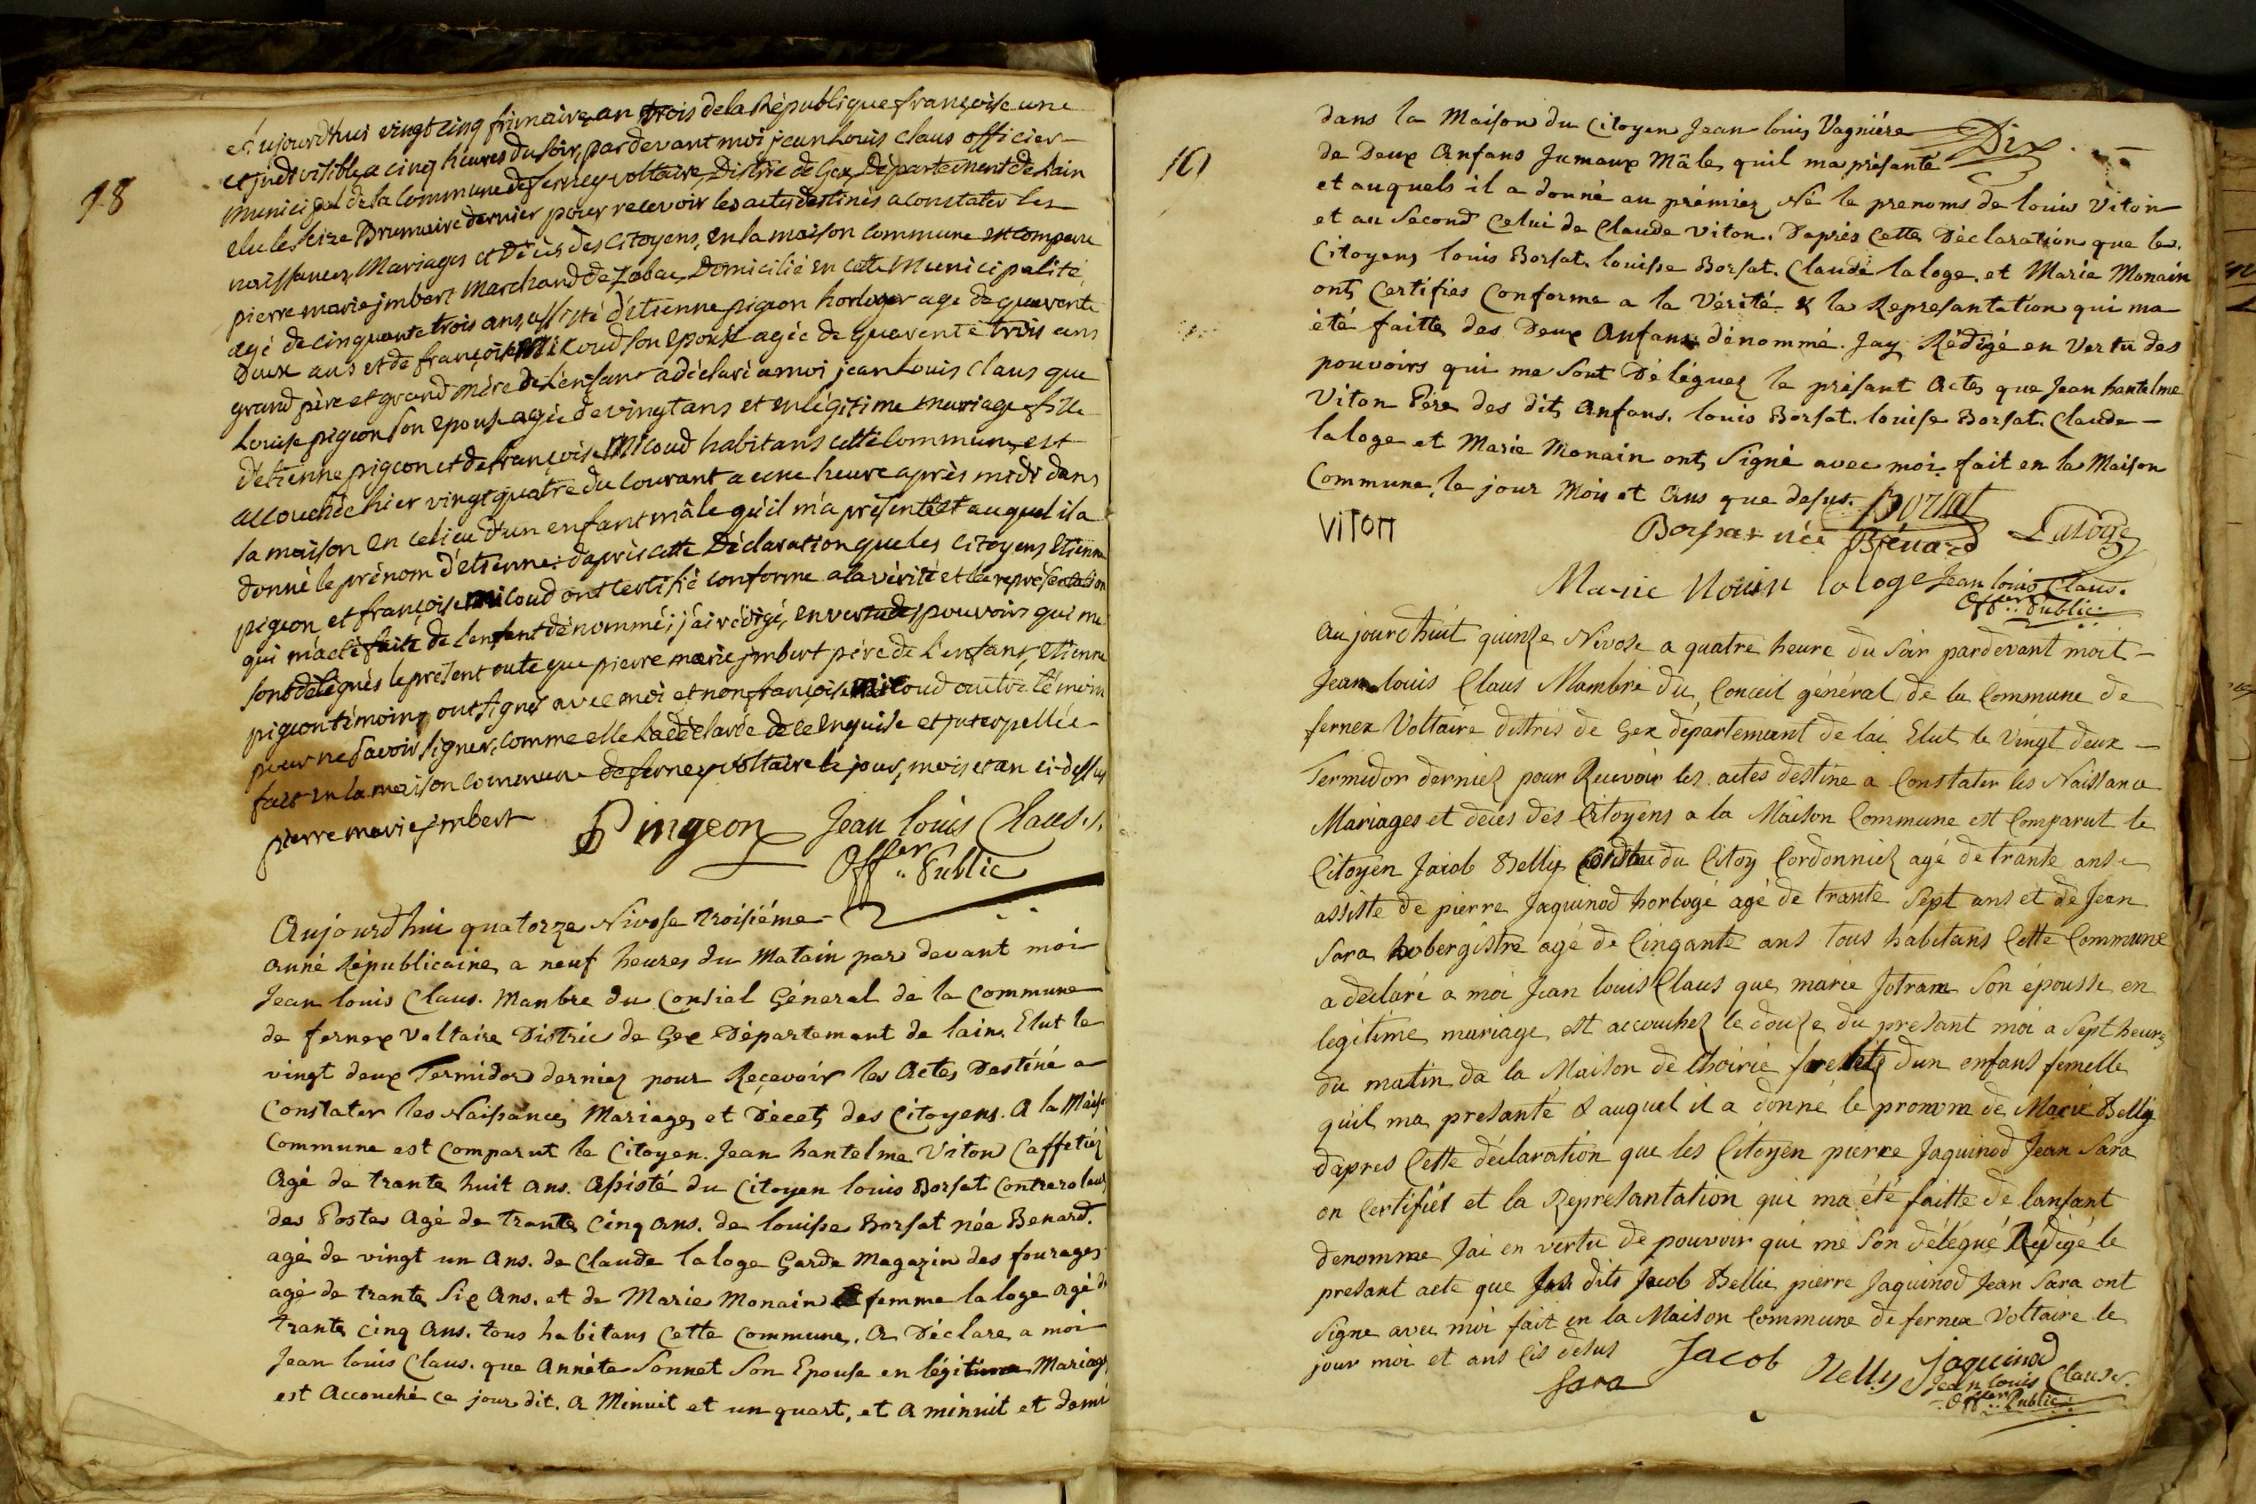 98
Aujourdhui vingt cinq frimaire an trois de la République françoise une
et indivisible, a cinq heures du soir, par devant moi jean Louis Claus officier
municipal de la Commune de ferney voltaire, District de Gex, Département de Lain
elu le seize Brumaire dernier pour recevoir les actes destinés a constater les
naissances, Mariages et Décès des Citoyens, en la maison commune est comparu
pierre marie jmbert Marchand de Tabac, Domicilié en cette Municipalité,
agé de cinquante trois ans, assisté d'étienne pigeon horloger agé de quarente
Deux ans et de françoise Micoud son epouse agée de quarente trois ans
grand père et grand mère de L'enfant a déclaré a moi jean Louis Claus que
Louise pigeon son epouse agée de vingt ans et en légitime mariage fille
d'étienne pigeon et de françoise Micoud habitans cette Commune, est
accouchée hier vingt quatre du courant a une heure après midi dans
sa maison en ce lieu d'un enfant mâle qu'il m'a présenté et auquel il a
donné le prénom d'étienne: d'après cette Déclaration que les Citoyens Etienne
pigeon et françoise Micoud ont certifié conforme a la vérité et la représentation
qui m'a été faite de l'enfant dénommé; j'ai rédigé, en vertu des pouvoirs qui me
sont délégués le présent acte que pierre marie jmbert père de L'enfant, Etienne
pigeon témoins ont signés avec moi et non françoise Micoud autre témoin
pour ne savoir signer, comme elle La déclaré de ce enquise et jnterpellée
fait en la maison commune de ferney voltaire le jour, mois et an ci-dessus
pierre marie jmbert Pingeon Jean louis Claus.
Off.er Public
Aujourdhui quatorze Nivose troisiéme
anné Républicaine, a neuf heures du Matain par devant moi
Jean louis Claus. Manbre du Consial Géneral de la Commune
de fernex Voltaire Distric de Gex Département de lain. Elut le
vingt deux Termidor derniez pour Reçevoir les Actes Destiné a
Constater les Naissances Mariages et Décet des Citoyens. A la Maison
Commune est Comparut le Citoyen. Jean hantelme Viton Caffetiéz
Agé de trante huit ans. Assisté du Citoyen louis Borsat Contrerolaur
des Postes Agé de trante Cinq ans. de louisse Borsat née Benard.
agé de vingt un ans. de Claude laloge Garde Magazin des fourages
agé de trante Six ans. et de Marie Monain femme laloge agé de
trante Cinq ans. tous habitans Cette Commune. A Déclare a moi
Jean louis Claus. que Annéte Sonnet Son Epouse en légitime Mariage
est Accouché ce jour dit. A Minuit et un quart, et A minuit et demi
161
dans la Maison du Citoyen Jean louis Vagniére Dix.
de Deux Anfans Jumaux Mâle, quil ma présanté
et auquels il a donné au prémiez Né le prenoms de louis Viton
et au Second Celui de Claude viton. Daprés Cette Déclaration que le.
Citoyens louis Borsat. louisse Borsat. Claude laloge. et Marie Monain
ont Certifiés Conforme a la Vérité & la Represantation qui ma
été faitte, des Deux Anfans dénommé. Jay Rédigé en Vertu des
pouvoirs qui me Sont Déléguez le présant Acte, que Jean hantelme
Viton Pére des dits Anfans. louis Borsat. louise Borsat. Claude
laloge et Marie Monain ont Signé avec moi. fait en la Maison
Commune, le jour Mois et Ans que desus. Borsat
viton Borssat née Bénard Laloge
Marie Monin laloge Jean louis Claus.
Off.er Public
Aujourdhuit quinze Nivose a quatre heure du Soir pardevant moit
Jean louis Claus Mambre du Conceil général de la Commune de
fernex Voltaire distris de Gex departemant de lai Elut le Vingt deux
Termidor derniez pour Recevoir les actes destine a Constater les Naissance
Mariages et deces des Citoyens a la Maison Commune est Comparut le
Citoyen Jacob Delly du Citoy Cordonniez agé de trante ans
assisté de pierre Jaquinod horlogé agé de trante Sept ans et de Jean
Sara hobergistre agé de Cinqante ans tous habitans Cette Commune
a declaré a moi Jean louis Claus que marie Jotrane Son épousse en
legitime mariage est accouchez le douze du presant moi a Sept heures
du matin da la Maison de dun enfans femelle
quil ma presanté & auquel il a donné le pronom de Marie Delly
dapres Cette déclaration que les Citoyen pierre Jaquinod Jean Sara
on Certifiés et la Represantation qui ma été faitte de lanfant
denomme Jai en vertu de pouvoir qui me Son délégué Rédigé le
presant acte que les dits Jacob Dellie pierre Jaquinod Jean Sara ont
Signe avec moi fait en la Maison Commune de fernex Voltaire le
jour moi et ans Cis desus Jacob Delly Jaquinod
Sara Jean louis Claus.
Off.er Public